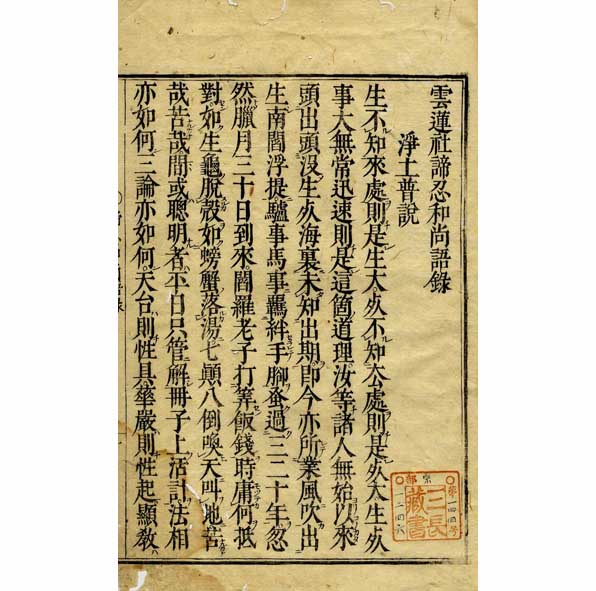 雲蓮社諦忍和尚語錄
淨土普說
生不知來處則是生大死不知去處則是死大生死
事大無常迅速則是這箇道理汝等諸人無始以來
頭出頭沒生死海裏未知出期即今亦所業風吹出
生南閻浮提驢事馬事羈絆手腳蚤過三二十年忽
然臘月三十日到來閻羅老子打筭飯錢時庸何抵
對如生龜脫殼如螃蟹落湯七顛八倒喚天叫地苦
哉苦哉間或聰明者平日只管解冊子上活計法相
亦如何三論亦如何天台則性具華嚴則性起顯教
三長
藏書